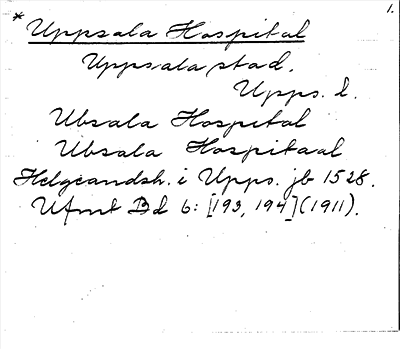 1.
* Uppsala Hospital
Uppsala stad.
Upps. l.
Ubsala Hospital
Ubsala Hospitaal
Helgeandsh. i Upps. jb 1528.
Ufmt Bd 6: [193, 194] (1911).